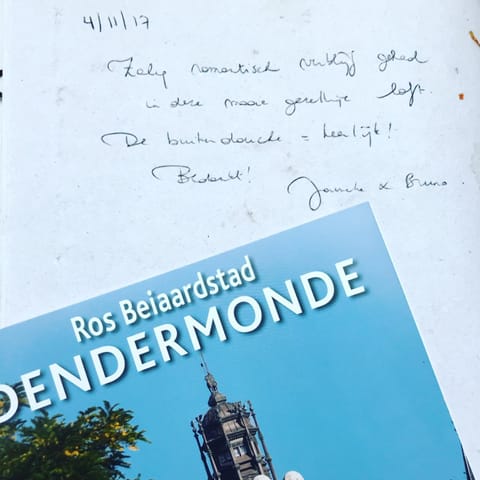 4/11/17
Zalig romantisch verblijf gehad
in deze mooie gezellige loft.
De buitendouche = heerlijk!
Bedankt!
& Bruno.
Ros Beiaardstad
DENDERMONDE